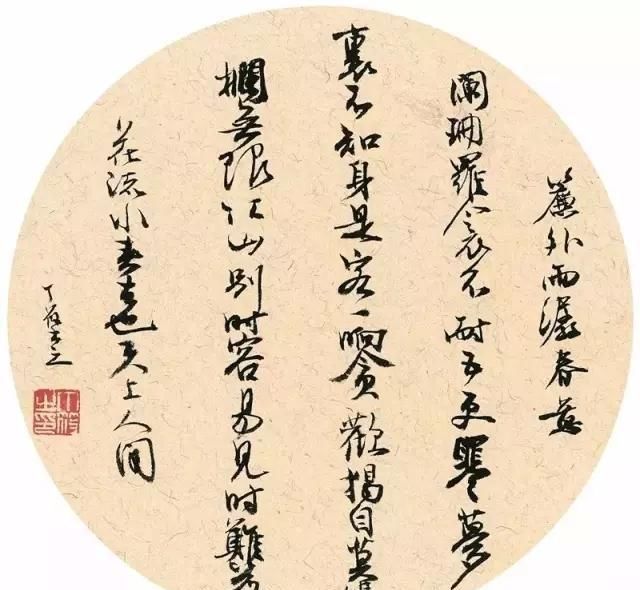 簾外雨潺春意
闌珊羅衾不耐五更寒夢
裏不知身是客一晌貪歡獨自莫
欄無限江山別時容易見時難落
花流水春去也天上人間